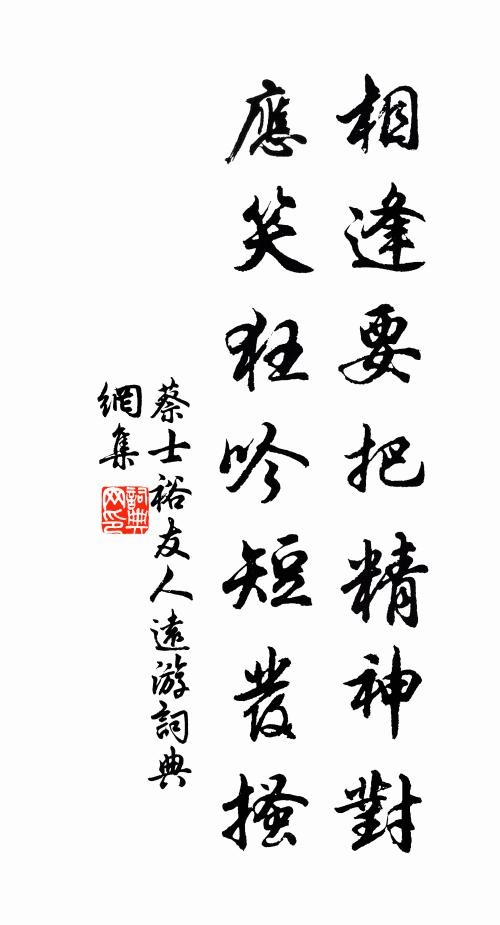 相逢要把精神對
應笑狂吟短發搔
蔡士裕友人遠游詞典
網集
詞典网印